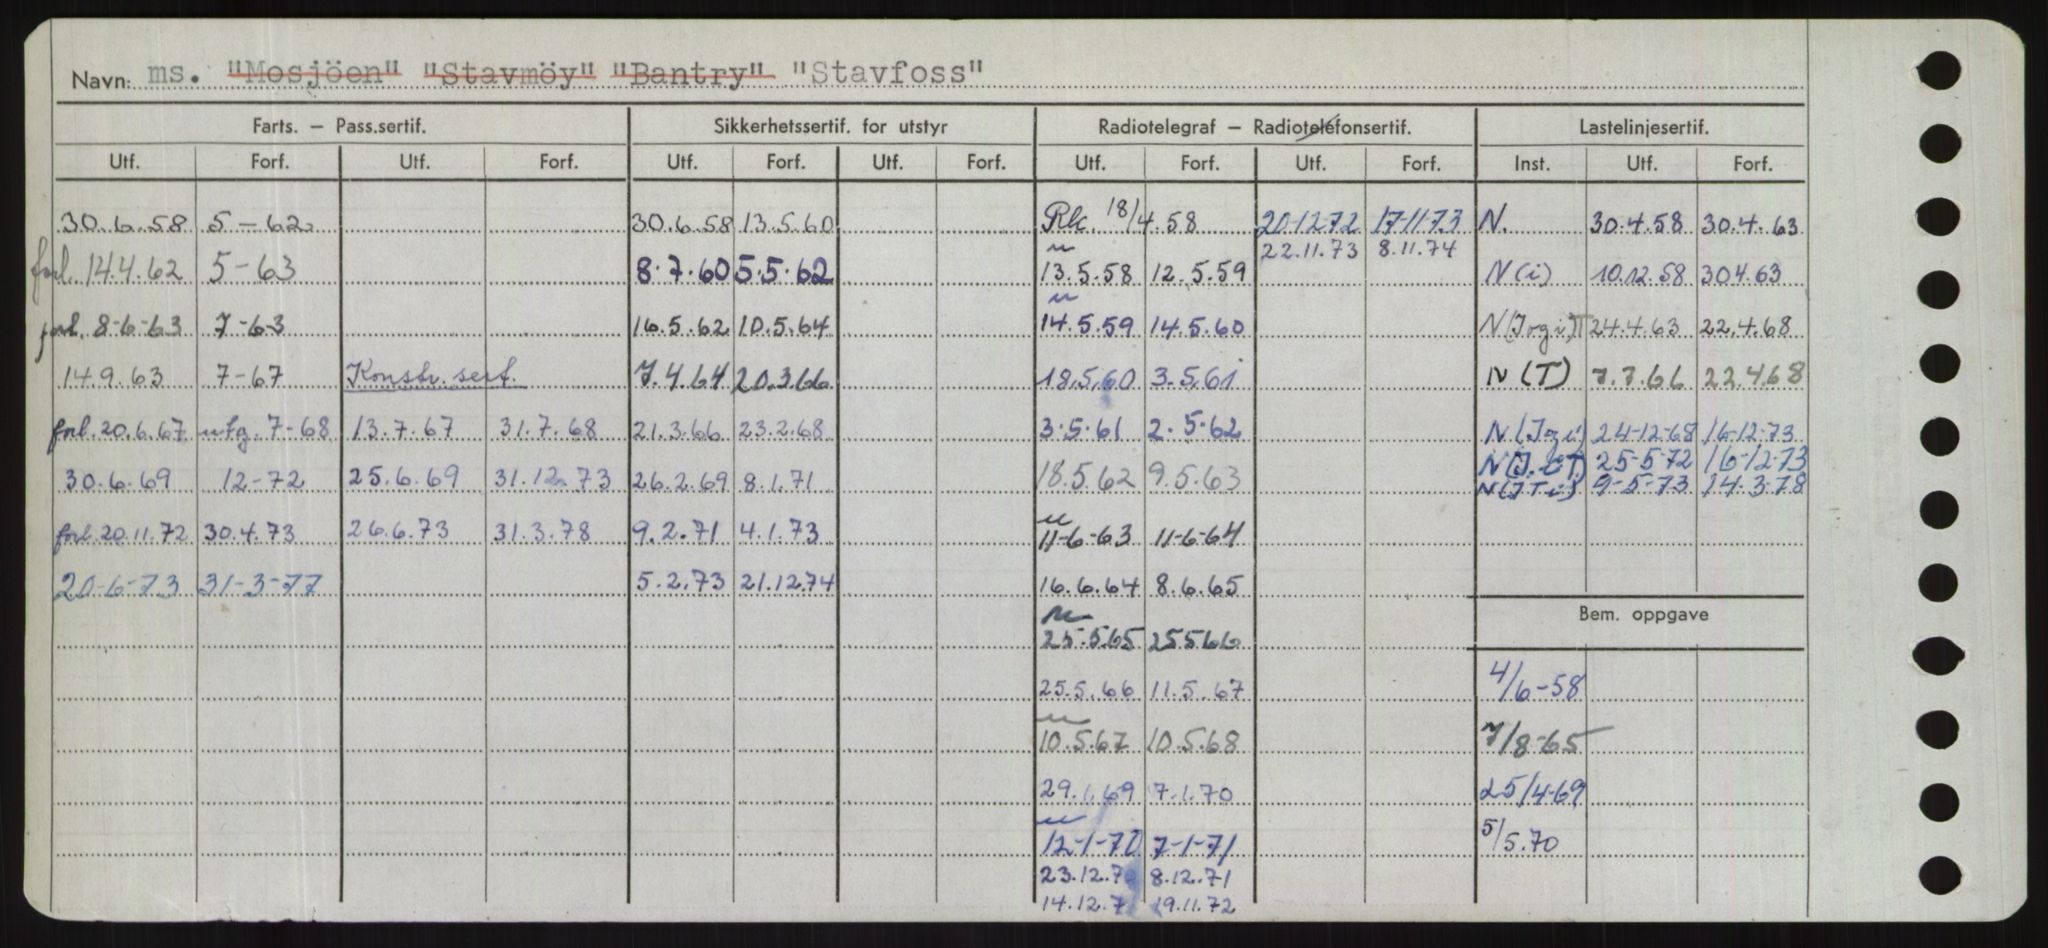 Navn: ms. "Mosjöen" "Stavmöy" "Bantry" "Stavfoss"
Farts. — Pass.sertif. Sikkerhetssertif. for utstyr Radiotelegraf — Radiotelefonsertif. Lastelinjesertif.
Utf. Forf. Utf. Forf. Utf. Forf. Utf. Forf. Utf. Forf. Utf. Forf. Inst. Utf. Forf.
30.6.58 5-62 30.6.58 13.5.60 18/4.58 20-12-72 17-11-73 N. 30.4.58 30.4.63
22.11.73 8.11.74
forl. 14.4.62 5-63 8.7.60 5.5.62 13.5.58 12.5.59 N(i) 10.12.58 30.4.63
forl. 8-6-63 7-63 16.5.62 10.5.64 14.5.59 14.5.60 24.4.63 22.4.68
14.9.63 7-67 Konstr. sert. 7.4.64 20.3.66 18.5.60 3.5.61 N(T) 7.7.66 22.4.68
forl. 20.6.67 utg. 7-68 13.7.67 31.7.68 21.3.66 23.2.68 3.5.61 2.5.62 24-12-68 16-12-73
25-5-72 16-12-73
30.6.69 12-72 25.6.69 31.12.73 26.2.69 8.1.71 18.5.62 9.5.63 9-5-73 14-3-78
forl. 20.11.72 30.4.73 26.6.73 31.3.78 9.2.71 4.1.73 11-6-63 11-6-64
20-6-73 31-3-77 5.2.73 21.12.74 16.6.64 8.6.65
Bem. oppgave
25.5.65 25.5.66
25.5.66 11.5.67 4/6-58
10.5.67 10.5.68 7/8-65
29.1.69 7.1.70 25/4-69
12-1-70 7-1-71 5/5.70
23.12.70 8.12.71
14.12.71 19.11.72